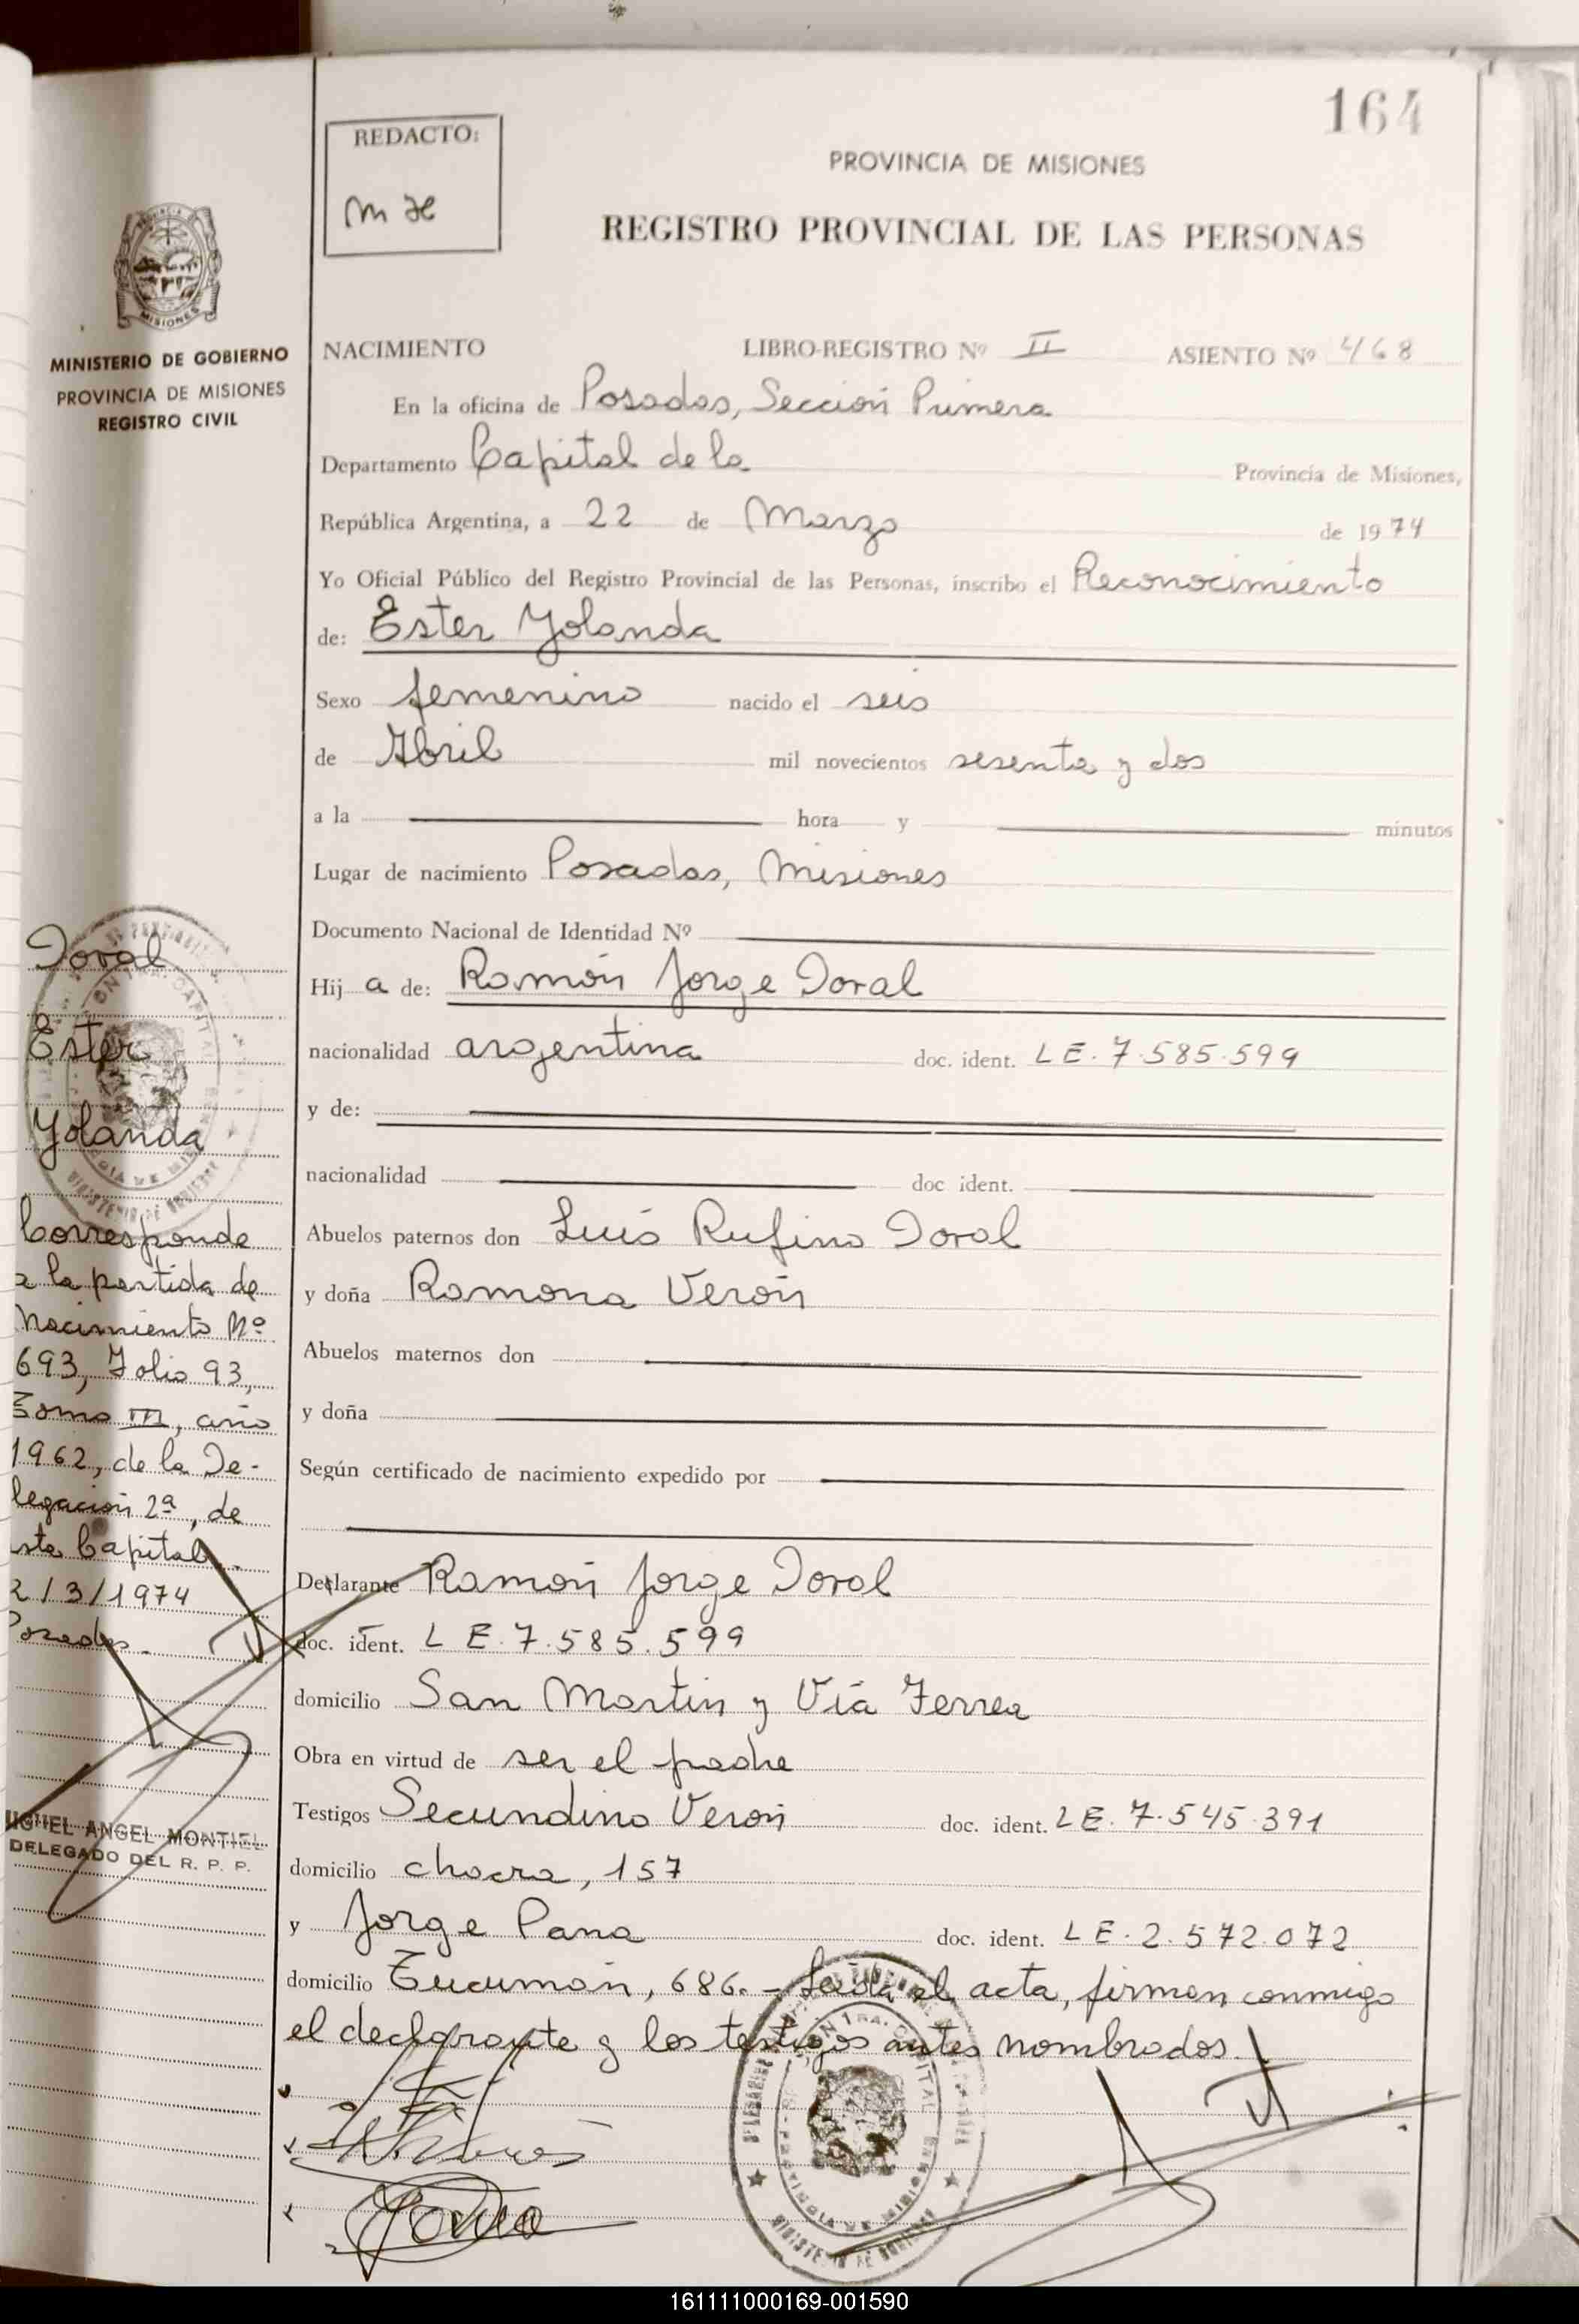 164
REDACTO:
PROVINCIA DE MISIONES
REGISTRO PROVINCIAL DE LAS PERSONAS
MISIONES
MINISTERIO DE GOBIERNO
PROVINCIA DE MISIONES
REGISTRO CIVIL
NACIMIENTO LIBRO-REGISTRO Nº II ASIENTO Nº 468
En la oficina de Posadas, Sección Primera
Departamento Capital de la Provincia de Misiones,
República Argentina, a 22 de Marzo de 1974
Yo Oficial Público del Registro Provincial de las Personas, inscribo el Reconocimiento
de: Ester Yolanda
Sexo femenino nacido el seis
de Abril mil novecientos sesenta y dos
a la hora y minutos
Lugar de nacimiento Posadas, Misiones
Documento Nacional de Identidad Nº
Hij a de: Ramón Jorge Doral
nacionalidad argentina doc. ident. LE. 7.585.599
y de:
nacionalidad doc ident.
Abuelos paternos don Luis Rufino Doral
y doña Ramona Verón
Abuelos maternos don
y doña
Según certificado de nacimiento expedido por
Declarante Ramón Jorge Doral
doc. ident. L E. 7.585.599
domicilio San Martín y Vía Ferrea
Obra en virtud de ser el padre
Testigos Secundino Verón doc. ident. LE. 7.545.391
domicilio chacra, 157
y Jorge Pana doc. ident. LE. 2.572.072
domicilio Tucumán, 686. - Leída el acta, firman conmigo
el declarante y los testigos antes nombrados.
Doral
Ester
Yolanda
Corresponde
a la partida de
Nacimiento Nº
693, Folio 93,
Tomo III, año
1962, de la De-
legación 2ª, de
sta Capital.
2/3/1974
Posadas.
MIGUEL ANGEL MONTIEL
DELEGADO DEL R. P. P.
161111000169-001590